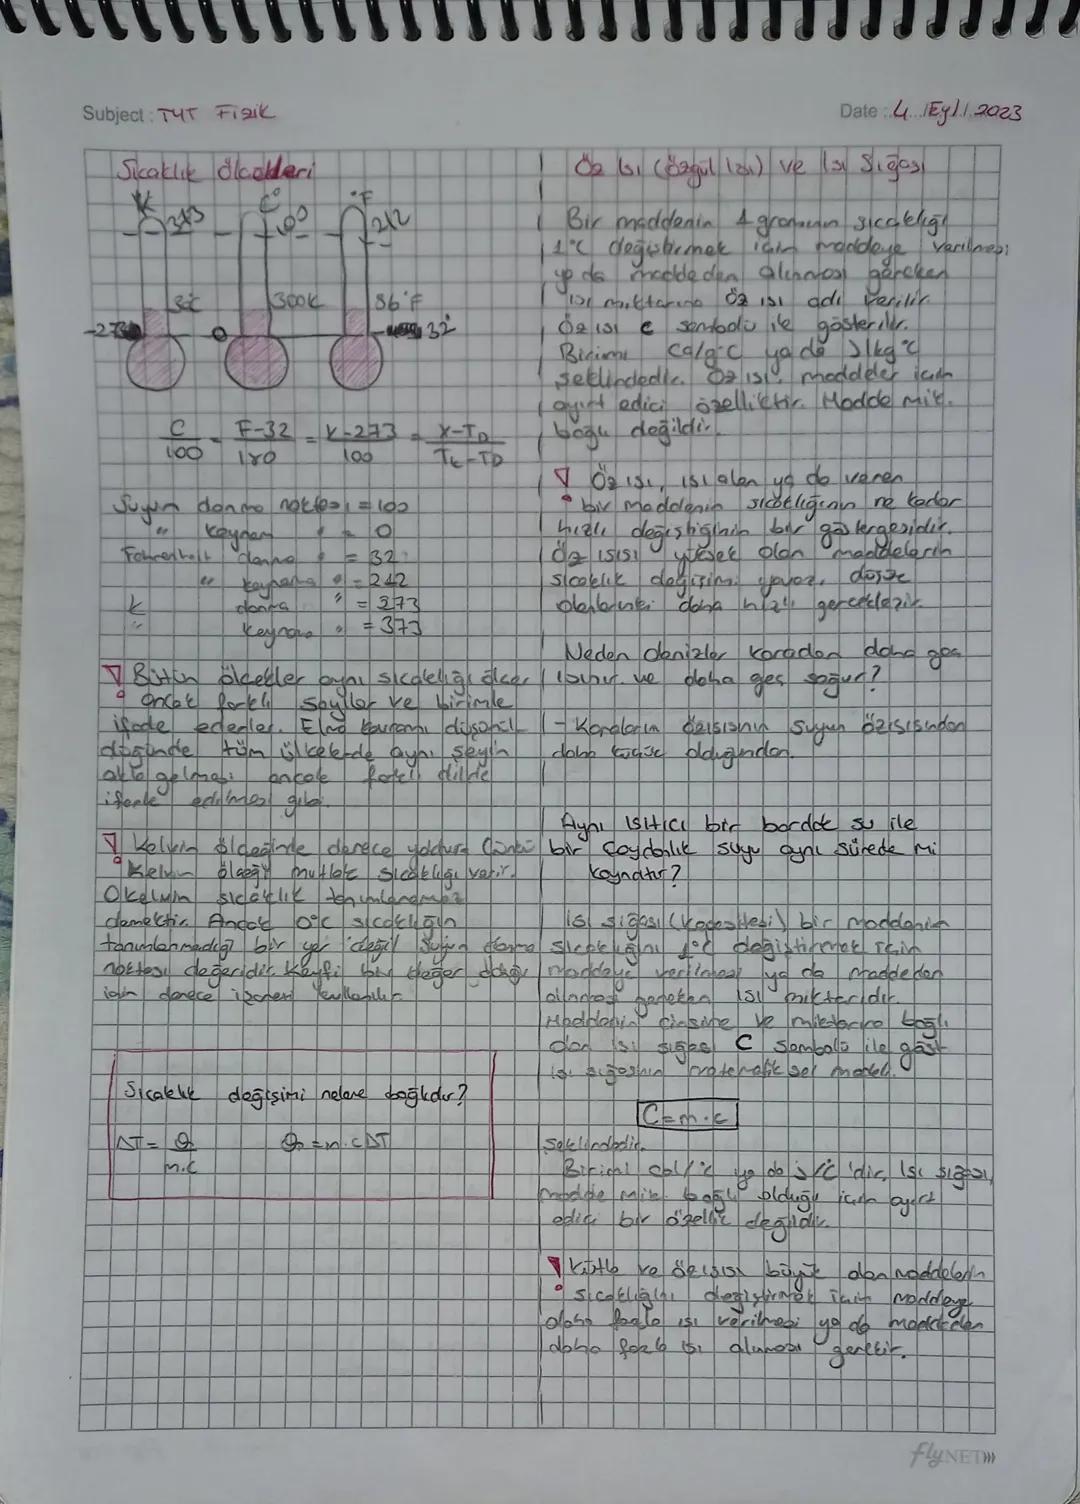 Subject : TYT Fizik
Date : 4 / Eyl / 2023
Sıcaklık Ölçekleri
K C° °F
373 212
32 300K 86°F
-273 0 32
C/100 = F-32/180 = K-273/100 = X-TD/TK-TD
Suyun donma noktası = 100
" kaynam " = 0
Fahrenheit donma " = 32
" kaynama " = 212
K donma " = 273
" kaynama " = 373
! Bütün ölçekler aynı sıcaklığı ölçer
ancak farklı sayılar ve birimle
ifade ederler. Elma kavramı düşünül
düğünde tüm ülkelerde aynı şeyin
akla gelmesi ancak farklı dilde
ifade edilmesi gibi.
! Kelvin ölçeğinde derece yoktur. Çünkü
Kelvin ölçeği mutlak sıcaklığı verir.
0 kelvin sıcaklık tanımlanamaz
demektir. Ancak 0°C sıcaklığın
tanımlanmadığı bir yer değil suyun donma
noktası değeridir. Keyfi bir değer olduğu
için derece işareti kullanılır
Sıcaklık değişimi nelere bağlıdır?
ΔT = Q/m.c Q = m.cΔT
Öz Isı (Özgül Isı) ve Isı Sığası
Bir maddenin 1 gramının sıcaklığı
1°C değiştirmek için maddeye verilmesi
ya da maddeden alınması gereken
ısı miktarına öz ısı adı verilir.
Öz ısı c sembolü ile gösterilir.
Birimi cal/g°C ya da J/kg°C
şeklindedir. Öz ısı, maddeler için
ayırt edici özelliktir. Madde mik.
bağlı değildir.
! Öz ısı, ısı alan ya da veren
bir maddenin sıcaklığının ne kadar
hızlı değiştiğinin bir göstergesidir.
Öz ısısı yüksek olan maddelerin
sıcaklık değişimi yavaş, düşük
olanlarınki daha hızlı gerçekleşir.
Neden denizler karadan daha geç
ısınır ve daha geç soğur?
- Karaların özısısının suyun özısısından
daha küçük olduğundan.
Aynı ısıtıcı bir bardak su ile
bir çaydanlık suyu aynı sürede mi
kaynatır?
Isı sığası (kapasitesi) bir maddenin
sıcaklığını 1°C değiştirmek için
maddeye verilmesi ya da maddeden
alınması gereken ısı miktarıdır.
Maddenin cinsine ve miktarına bağlı
olan ısı sığası C sembolü ile göst
ısı sığasının matematiksel modeli.
C = m.c
şeklindedir.
Birimi cal/°C ya da J/°C 'dir. Isı sığası,
madde mik. bağlı olduğu için ayırt
edici bir özellik değildir.
! Kütle ve özısısı büyük olan maddelerin
sıcaklığını değiştirmek için maddeye
daha fazla ısı verilmesi ya da maddeden
daha fazla ısı alınması gerekir.
flyNET